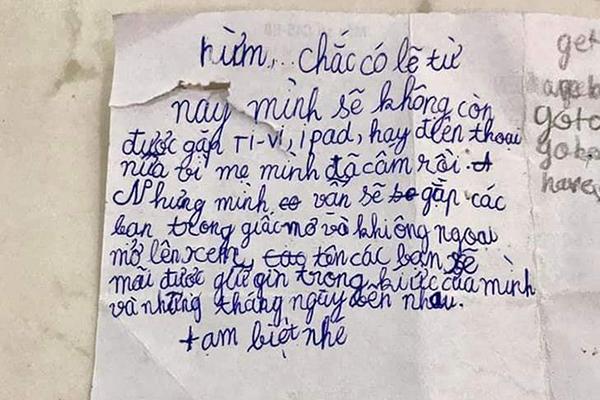 hừm... chắc có lẽ từ
nay mình sẽ không còn
được gặp TI-VI, ipad, hay điện thoại
nữa vì mẹ mình đã cấm rồi.
Nhưng mình vẫn sẽ gặp các
bạn trong giấc mơ và khi ông ngoại
mở lên xem, tên các bạn sẽ
mãi được giữ gìn trong kí ức của mình
và những tháng ngày bên nhau.
tạm biệt nhé
get
goto
go
have